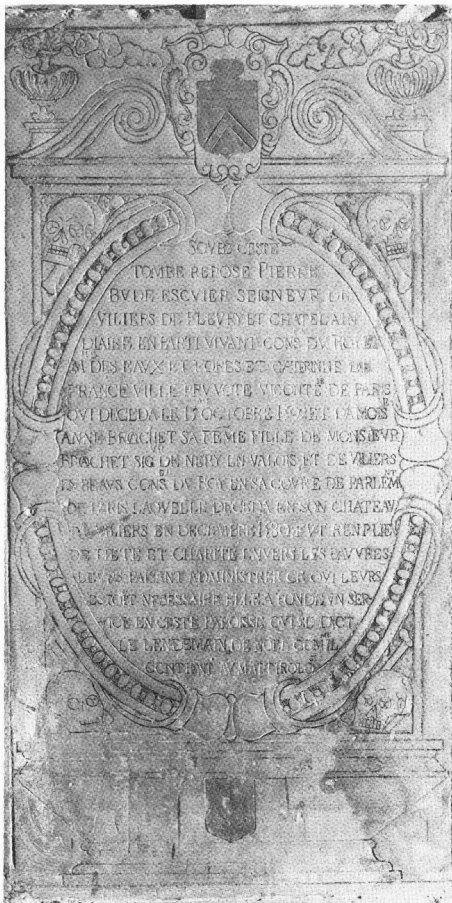 SOVBZ CESTE
TOMBE REPOSE PIERRE
BVDE ESCVIER SEIGNEVR DE
VILIERS DE FLEVRY ET CHATELAIN
EN PARTI VIVANT CONS DV ROY
M DES EAVX ET FORES ET
FRANCE VILLE PREVOTE VICONTE DE PARIS
QVI DECEDA LE 15 OCTOBRE ET DAMOIS
ANNE BRACHET SA FEME FILLE DE MONSIEVR
BRACHET SIG DE NERY EN VALOIS ET DE VILIERS
CONS DV ROY EN SA COVRE DE PARLEM
DE PARIS LAQVELLE DECEDA EN SON CHATEAV
VILIERS EN DECEMBRE FVT RENPLIE
DE PIETE ET CHARITE ENVERS LES PAVVRES
FAISANT ADMINISTRER CE QVI LEVRS
ESTOIT NESESSAIRE ELLE A FONDE VN SER
VICE EN CESTE PAROISSE QVI SE DICT
LE LENDEMAIN DE COM IL
CONTIENT AV MARTIROLO